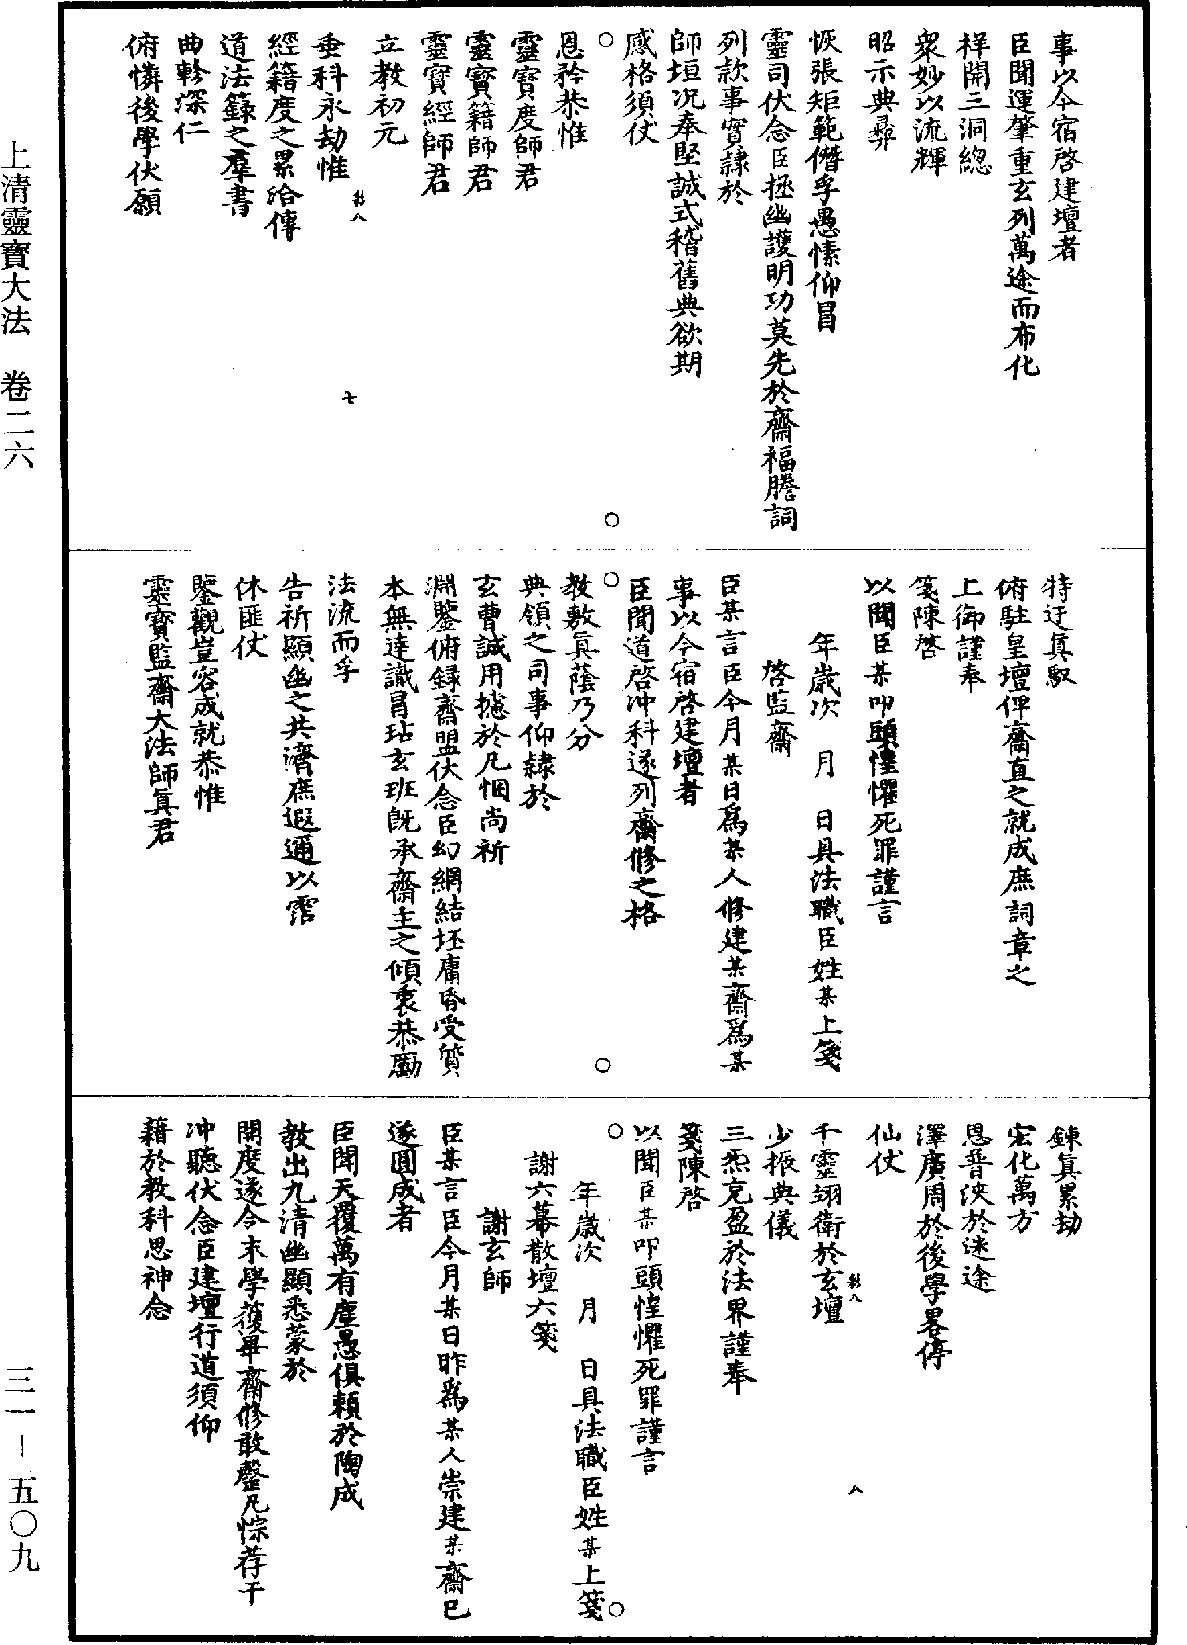 事以今宿啓建壇者
臣聞運肇重玄列萬途而布化
祥開三洞總
衆妙以流輝
昭示典彝
恢張矩範僭孚愚愫仰冒
靈司伏念臣拯幽護明功莫先於齋福謄詞
列款事實隷於
師垣况奉堅誠式稽舊典欲期
感格須仗
恩矜恭惟
靈寳度師君
靈寳籍師君
靈寳經師君
立教初元
垂科永劫惟
經籍度之累洽傳
道法籙之羣書
曲軫深仁
俯憐後學伏願
七
特迂眞馭
俯駐皇壇俾齋直之就成庶詞章之
上御謹奉
箋陳啓
以聞臣某叩頭惶懼死罪謹言
年歲次　月　日具法職臣姓某上箋
啓監齋
臣某言臣今月某日爲某人修建某齋爲某
事以今宿啓建壇者
臣聞道啓冲科遂列齋修之格
教敷眞蔭乃分
典領之司事仰隷於
玄曹誠用攄於凡悃尚祈
淵鑒俯録齋盟伏念臣幻網結坯庸昏受質
本無達識冒玷玄班旣承齋主之傾衷恭勵
法流而孚
告祈顯幽之共濟庶遐邇以霑
休匪仗
鑒觀豈容成就恭惟
靈寳監齋大法師眞君
鍊眞累劫
宏化萬方
恩普浹於迷途
澤廣周於後學畧停
仙仗
千靈翊衛於玄壇
少振典儀
三炁充盈於法界謹奉
箋陳啓
以聞臣某叩頭惶懼死罪謹言
年歲次　月　日具法職臣姓某上箋
謝六幕散壇六箋
謝玄師
臣某言臣今月某日昨爲某人崇建某齋已
遂圓成者
臣聞天覆萬有塵愚俱頼於陶成
教出九清幽顯悉蒙於
開度遂令末學獲畢齋修敢罄凡悰荐干
冲聽伏念臣建壇行道須仰
藉於教科思神念
八
上清靈寳大法　卷二六
三一－五〇九